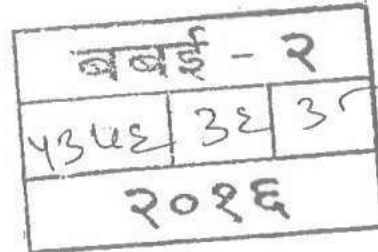 बबई - २
५३५६ ३६
२०१६